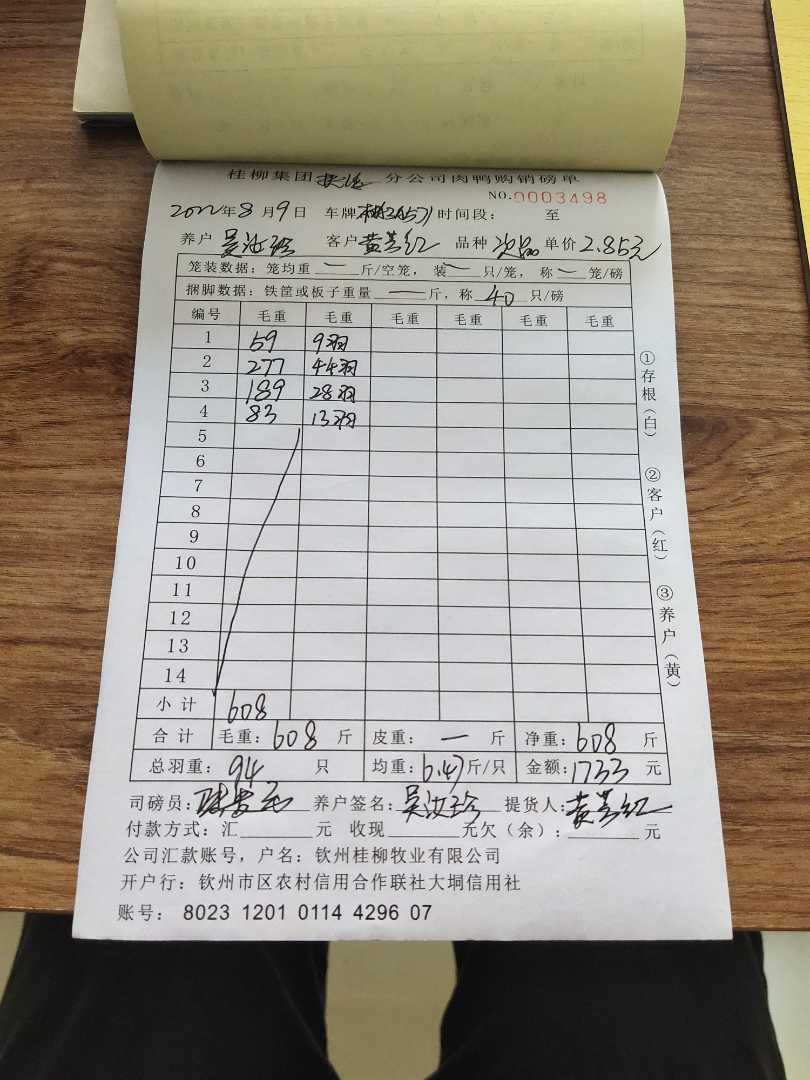 桂柳集团 分公司肉鸭购销磅单
NO.0003498
2022年8月9日 车牌 时间段： 至
养户 吴汝珍 客户 黄芳红 品种 次品 单价 2.85元
笼装数据：笼均重 一 斤/空笼，装 一 只/笼，称 一 笼/磅
捆脚数据：铁筐或板子重量 一 斤，称 40 只/磅
编号 毛重 毛重 毛重 毛重 毛重 毛重
1 59 9羽
2 277 44羽
3 189 28羽
4 83 13羽
5
6
7
8
9
10
11
12
13
14
小计 608
合计 毛重：608 斤 皮重：一 斤 净重：608 斤
总羽重：94 只 均重：6.47斤/只 金额：1733 元
司磅员： 养户签名：吴汝珍 提货人：黄芳红
付款方式：汇 元 收现 元欠（余）： 元
公司汇款账号，户名：钦州桂柳牧业有限公司
开户行：钦州市区农村信用合作联社大垌信用社
账号：8023 1201 0114 4296 07
①存根（白）
②客户（红）
③养户（黄）